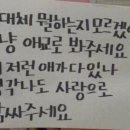 대체 뭘하든지 모르겠
냥 애교로 봐주세요
저런 애가 다 있나
각나도 사랑으로
싸주세요